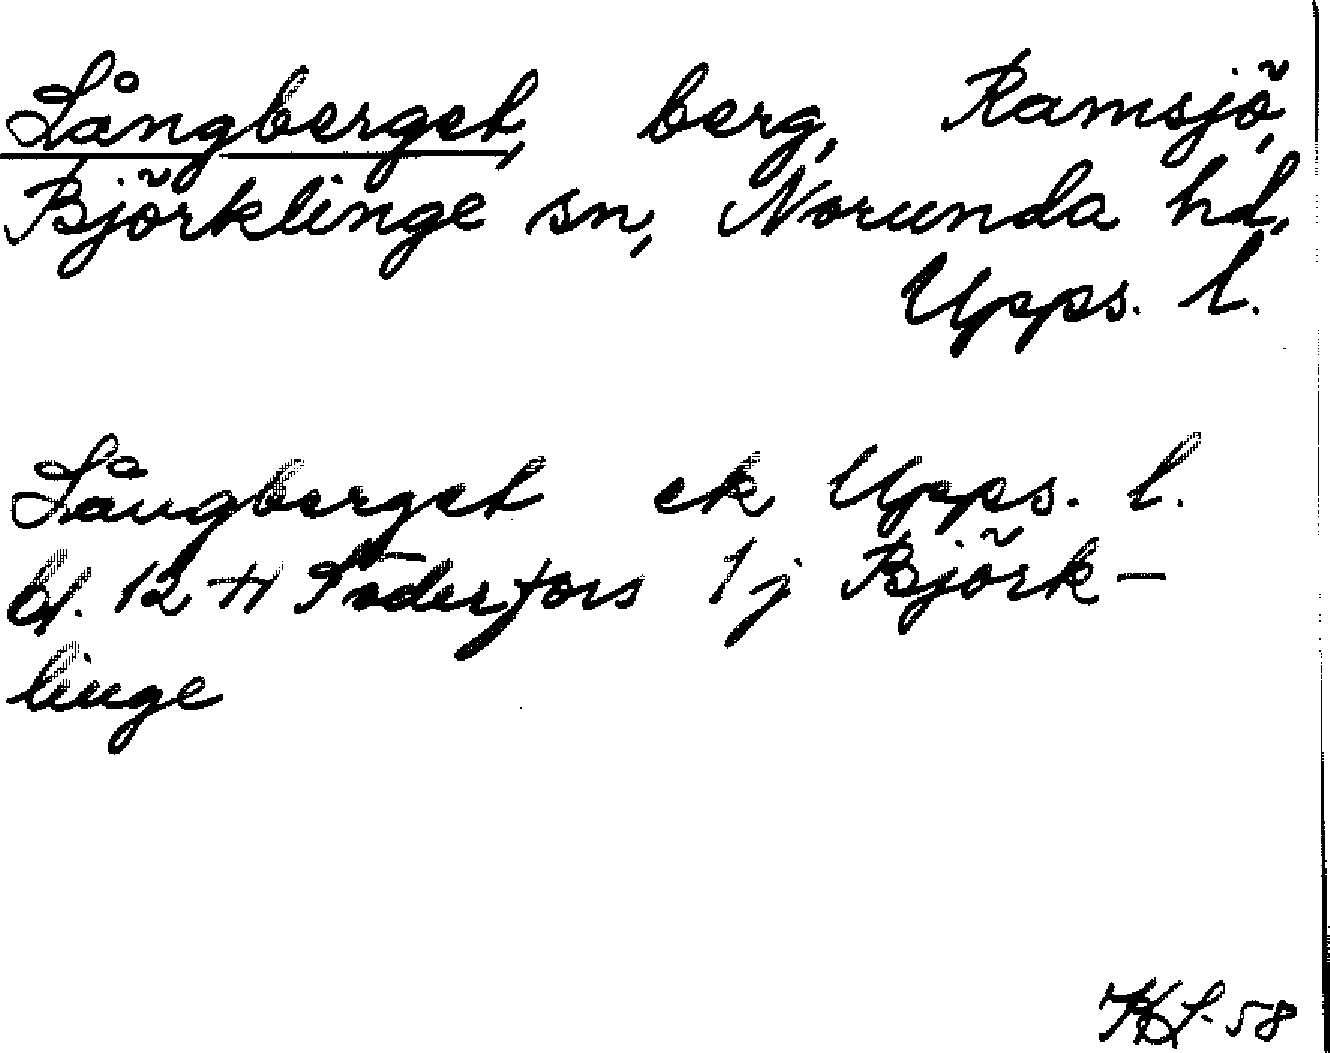 Långberget, berg, Ramsjö,
Björklinge sn, Norunda hd,
Upps. l.
Långberget ek Upps. l.
bl. 12 H Söderfors 1 j Björk-
linge
58